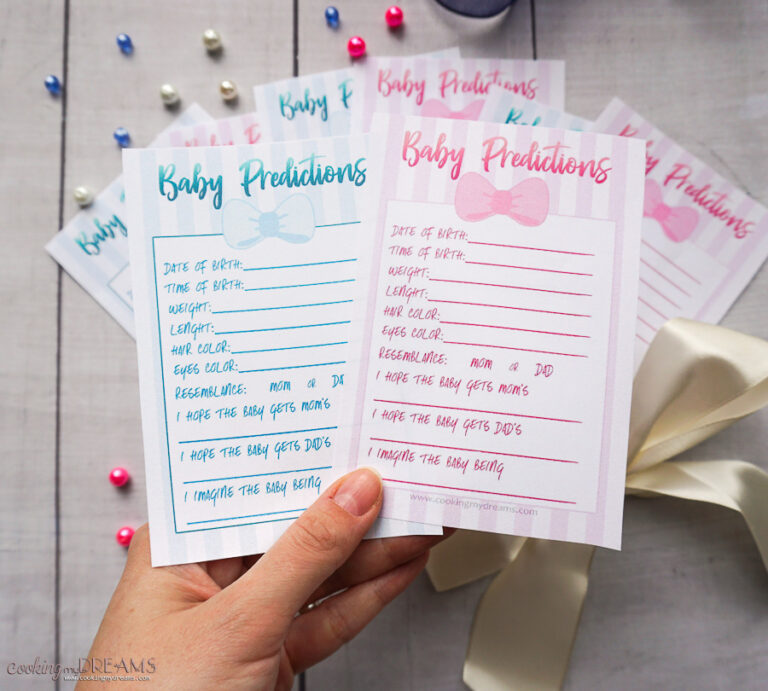 Baby Predictions
Baby P
Baby
Baby Predictions
DATE OF BIRTH:
TIME OF BIRTH:
WEIGHT:
LENGHT:
HAIR COLOR:
EYES COLOR:
RESEMBLANCE: MOM OR DA
I HOPE THE BABY GETS MOM'S
I HOPE THE BABY GETS DAD'S
I IMAGINE THE BABY BEING
Baby Predictions
DATE OF BIRTH:
TIME OF BIRTH:
WEIGHT:
LENGHT:
HAIR COLOR:
EYES COLOR:
RESEMBLANCE: MOM OR DAD
I HOPE THE BABY GETS MOM'S
I HOPE THE BABY GETS DAD'S
I IMAGINE THE BABY BEING
www.cookingmydreams.com
Predictions
cooking my DREAMS
www.cookingmydreams.com